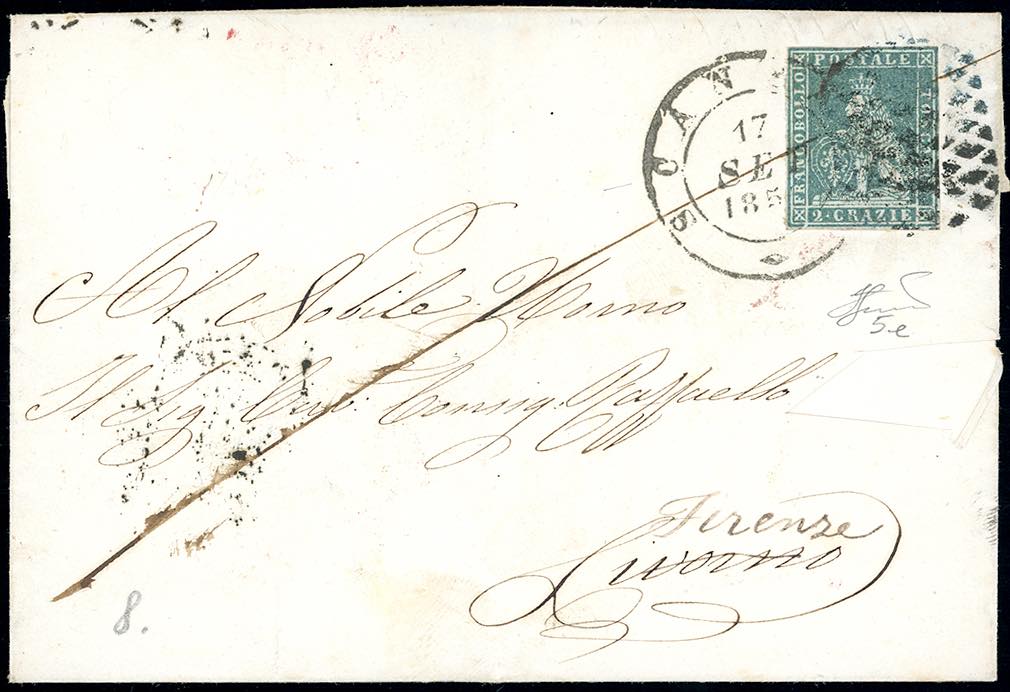 SCAN
17
SE
185
FRANCOBOLLO
POSTALE
TOSCANO
2·CRAZIE
5e
Al Nobile Uomo
Il Sig. Cav. Consig. Raffaello
Firenze
Livorno
8.